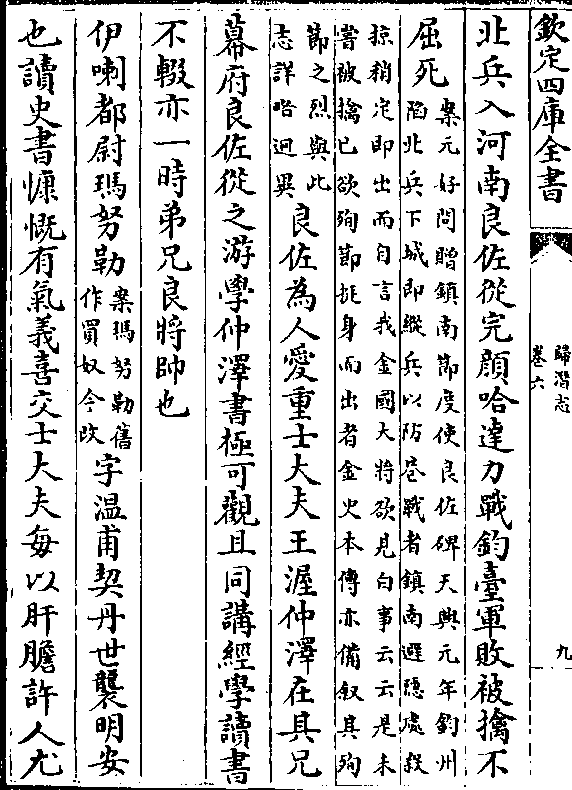 欽定四庫全書
歸潛志
卷六
九
北兵入河南良佐從完顔哈達力戰鈞臺軍敗被擒不
屈死案元好問贈鎮南節度使良佐碑天興元年鈞州
陷北兵下城即縱兵以防巷戰者鎮南避隱處殺
掠稍定即出而自言我金國大將欲見白事云云是未
嘗被擒已欲殉節挺身而出者金史本傳亦備叙其殉
節之烈與此
志詳略迥異
良佐為人愛重士大夫王渥仲澤在其兄
幕府良佐從之游學仲澤書極可觀且同講經學讀書
不輟亦一時弟兄良將帥也
伊喇都尉瑪努勒案瑪努勒舊
作買奴今改
字温甫契丹世襲明安
也讀史書慷慨有氣義喜交士大夫每以肝膽許人尤